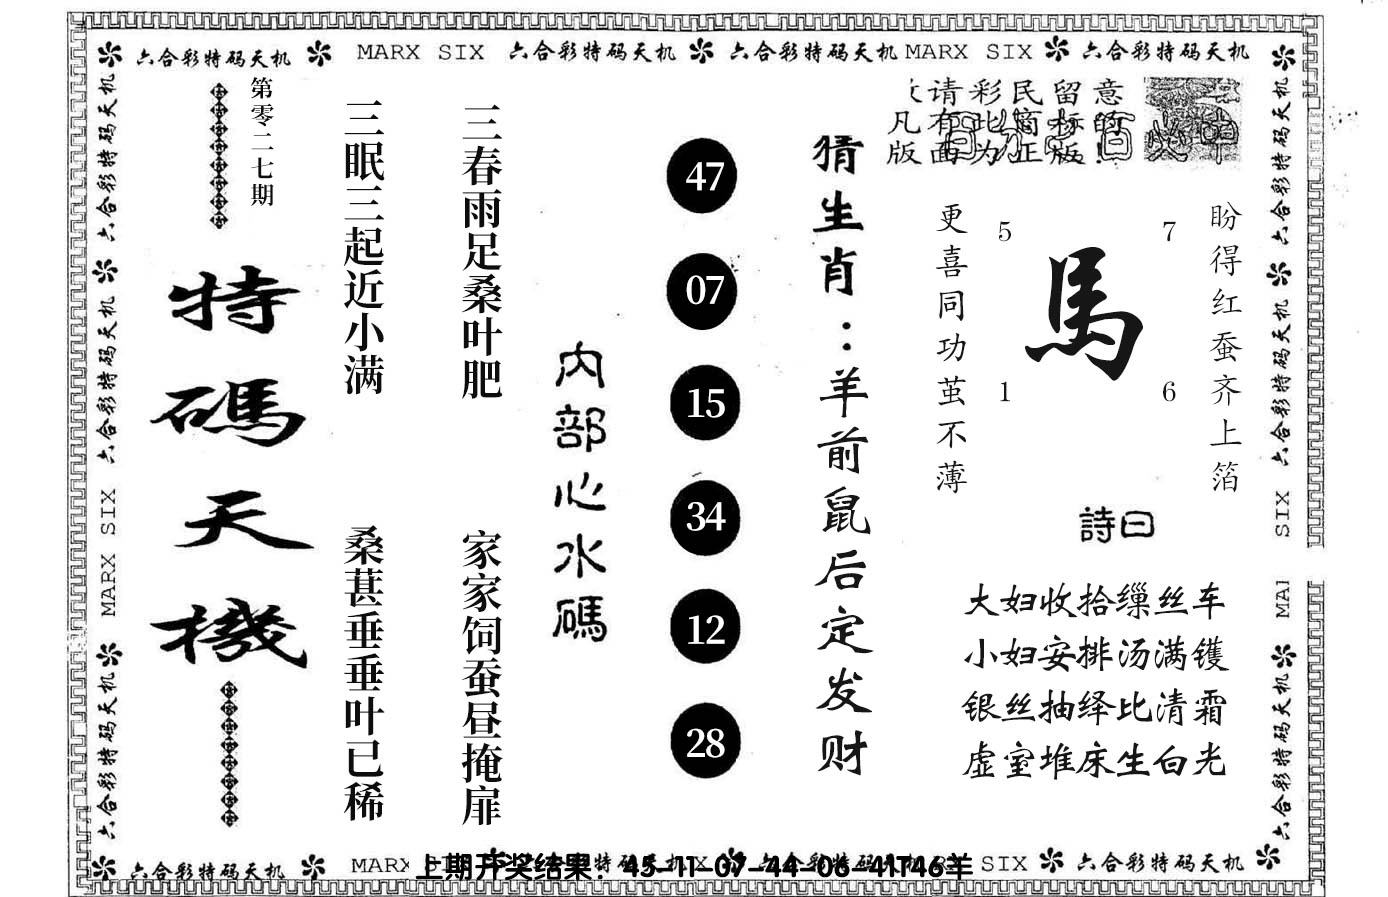 六合彩特码天机 MARX SIX 六合彩特码天机 六合彩特码天机 MARX SIX 六合彩特码天机
六合彩特码天机 六合彩特码天机 MARX SIX 六合彩特码天机
第零二七期
特碼天機
三眠三起近小满
桑葚垂垂叶已稀
三春雨足桑叶肥
家家饲蚕昼掩扉
内部心水碼
47
07
15
34
12
28
猜生肖:羊前鼠后定发财
请彩民留意
凡有此商标的
版面为正版!
更喜同功茧不薄
5
7
馬
1
6
盼得红蚕齐上箔
詩曰
大妇收拾缫丝车
小妇安排汤满镬
银丝抽绎比清霜
虚室堆床生白光
六合彩特码天机 六合彩特码天机 SIX MAI 六合彩特码天机
六合彩特码天机 MARX SIX 六合彩特码天机
上期开奖结果:45-11-07-44-06-41T46羊